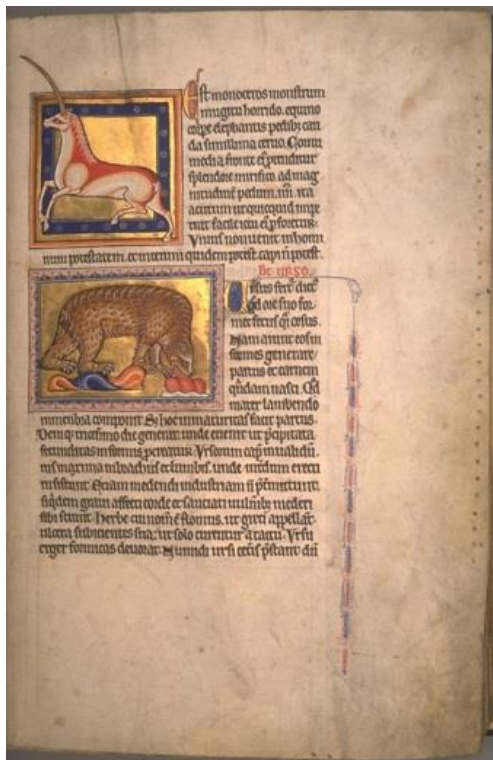 Est monoceros monstrum
mugitu horrido. equino
corpe elephantis pedibus cau
da simillima ceruo. Cornu
media fronte eius protenditur
splendore mirifico. ad mag
nitudinē pedum. iiii. ita
acutum ut quicquid impe
tat facile ictu eius pforetur.
Viuus non uenit in homi
num potestatem. et interimi quidem potest. capi nō potest.
De urso.
Ursus fert dici
qd ore suo for
met fetus qi orsus.
Nam aiunt eos in
formes generare
partus et carnem
quādam nasci. Qd
mater lambendo
membra componit. Sz hoc inmaturitas facit partus.
Deniq; tricesimo die generat. unde euenit ut pcipitata
fecunditas informis procreatur. Vrsorum caput inualidū.
uis maxima in brachiis et lumbis. unde interdum erecti
insistunt. Etiam medendi industriam nō pretermittunt.
siqdem graui affecti cede et sauciati uulnibz mederi
sibi sciunt. herbe cui nom ē flomus. ut greci appellant
ulcera subicientes sua. ut solo curentur a tactu. Vrsus
eger formicas deuorat. Numidi ursi ceteris prestant dū